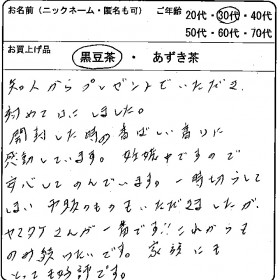 お名前（ニックネーム・匿名も可） ご年齢 20代・30代・40代
50代・60代・70代
お買上げ品
黒豆茶 ・ あずき茶
知人からプレゼントでいただき、
初めて口にしました。
開封した時の香ばしい香りに
感動しています。 妊娠中ですので
安心してのんでいます。 一時
しまい 他のものもいただきましたが、
さんが一番です!! これからも
のみ続けたいです。 家族にも
とても好評です。